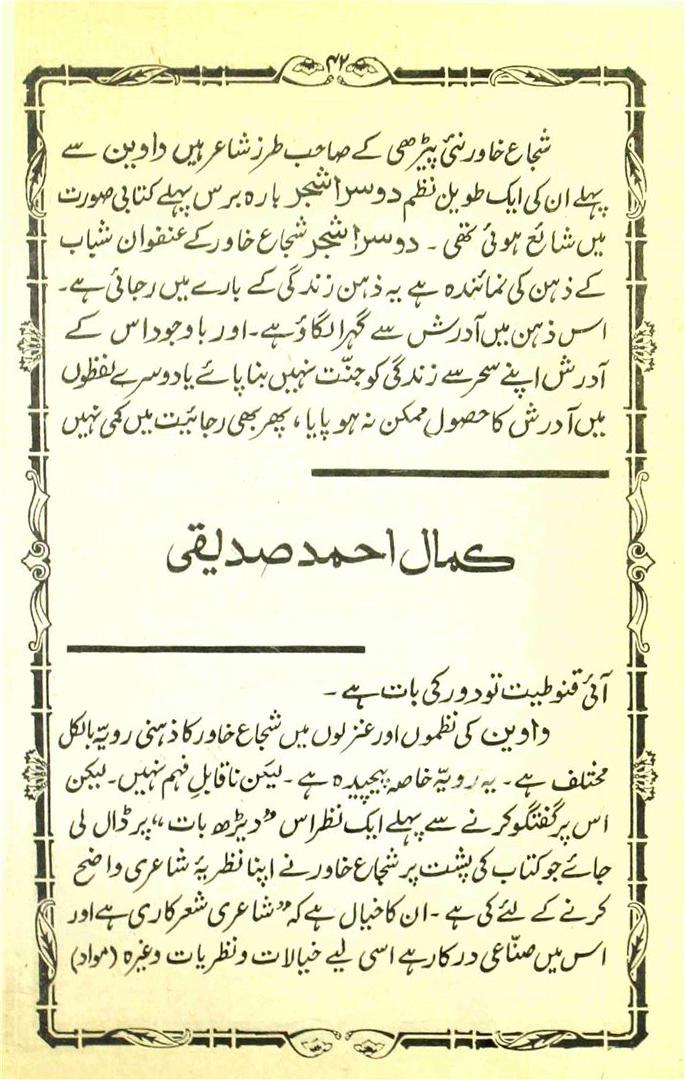 ۴۲
شجاع خاور نئی پیڑھی کے صاحب طرز شاعر ہیں واوین سے
پہلے ان کی ایک طویل نظم دوسرا شجر بارہ برس پہلے کتابی صورت
میں شائع ہوئی تھی ۔ دوسرا شجر شجاع خاور کے عنفوان شباب
کے ذہن کی نمائندہ ہے یہ ذہن زندگی کے بارے میں رجائی ہے۔
اس ذہن میں آدرش سے گہرا لگاؤ ہے۔ اور باوجود اس کے
آدرش اپنے سحر سے زندگی کو جنّت نہیں بنا پائے یا دوسرے لفظوں
میں آدرش کا حصول ممکن نہ ہو پایا، پھر بھی رجائیت میں کمی نہیں
کمال احمد صدیقی
آئی قنوطیت تو دور کی بات ہے ۔
واوین کی نظموں اور غزلوں میں شجاع خاور کا ذہنی رویّہ بالکل
مختلف ہے۔ یہ رویّہ خاصہ پیچیدہ ہے ۔ لیکن ناقابلِ فہم نہیں۔ لیکن
اس پر گفتگو کرنے سے پہلے ایک نظر اس ”دیڑھ بات“ پر ڈال لی
جائے جو کتاب کی پشت پر شجاع خاور نے اپنا نظریۂ شاعری واضح
کرنے کے لئے کی ہے ۔ ان کا خیال ہے کہ ”شاعری شعر کاری ہے اور
اس میں صنّاعی درکار ہے اسی لیے خیالات و نظریات وغیرہ (مواد)